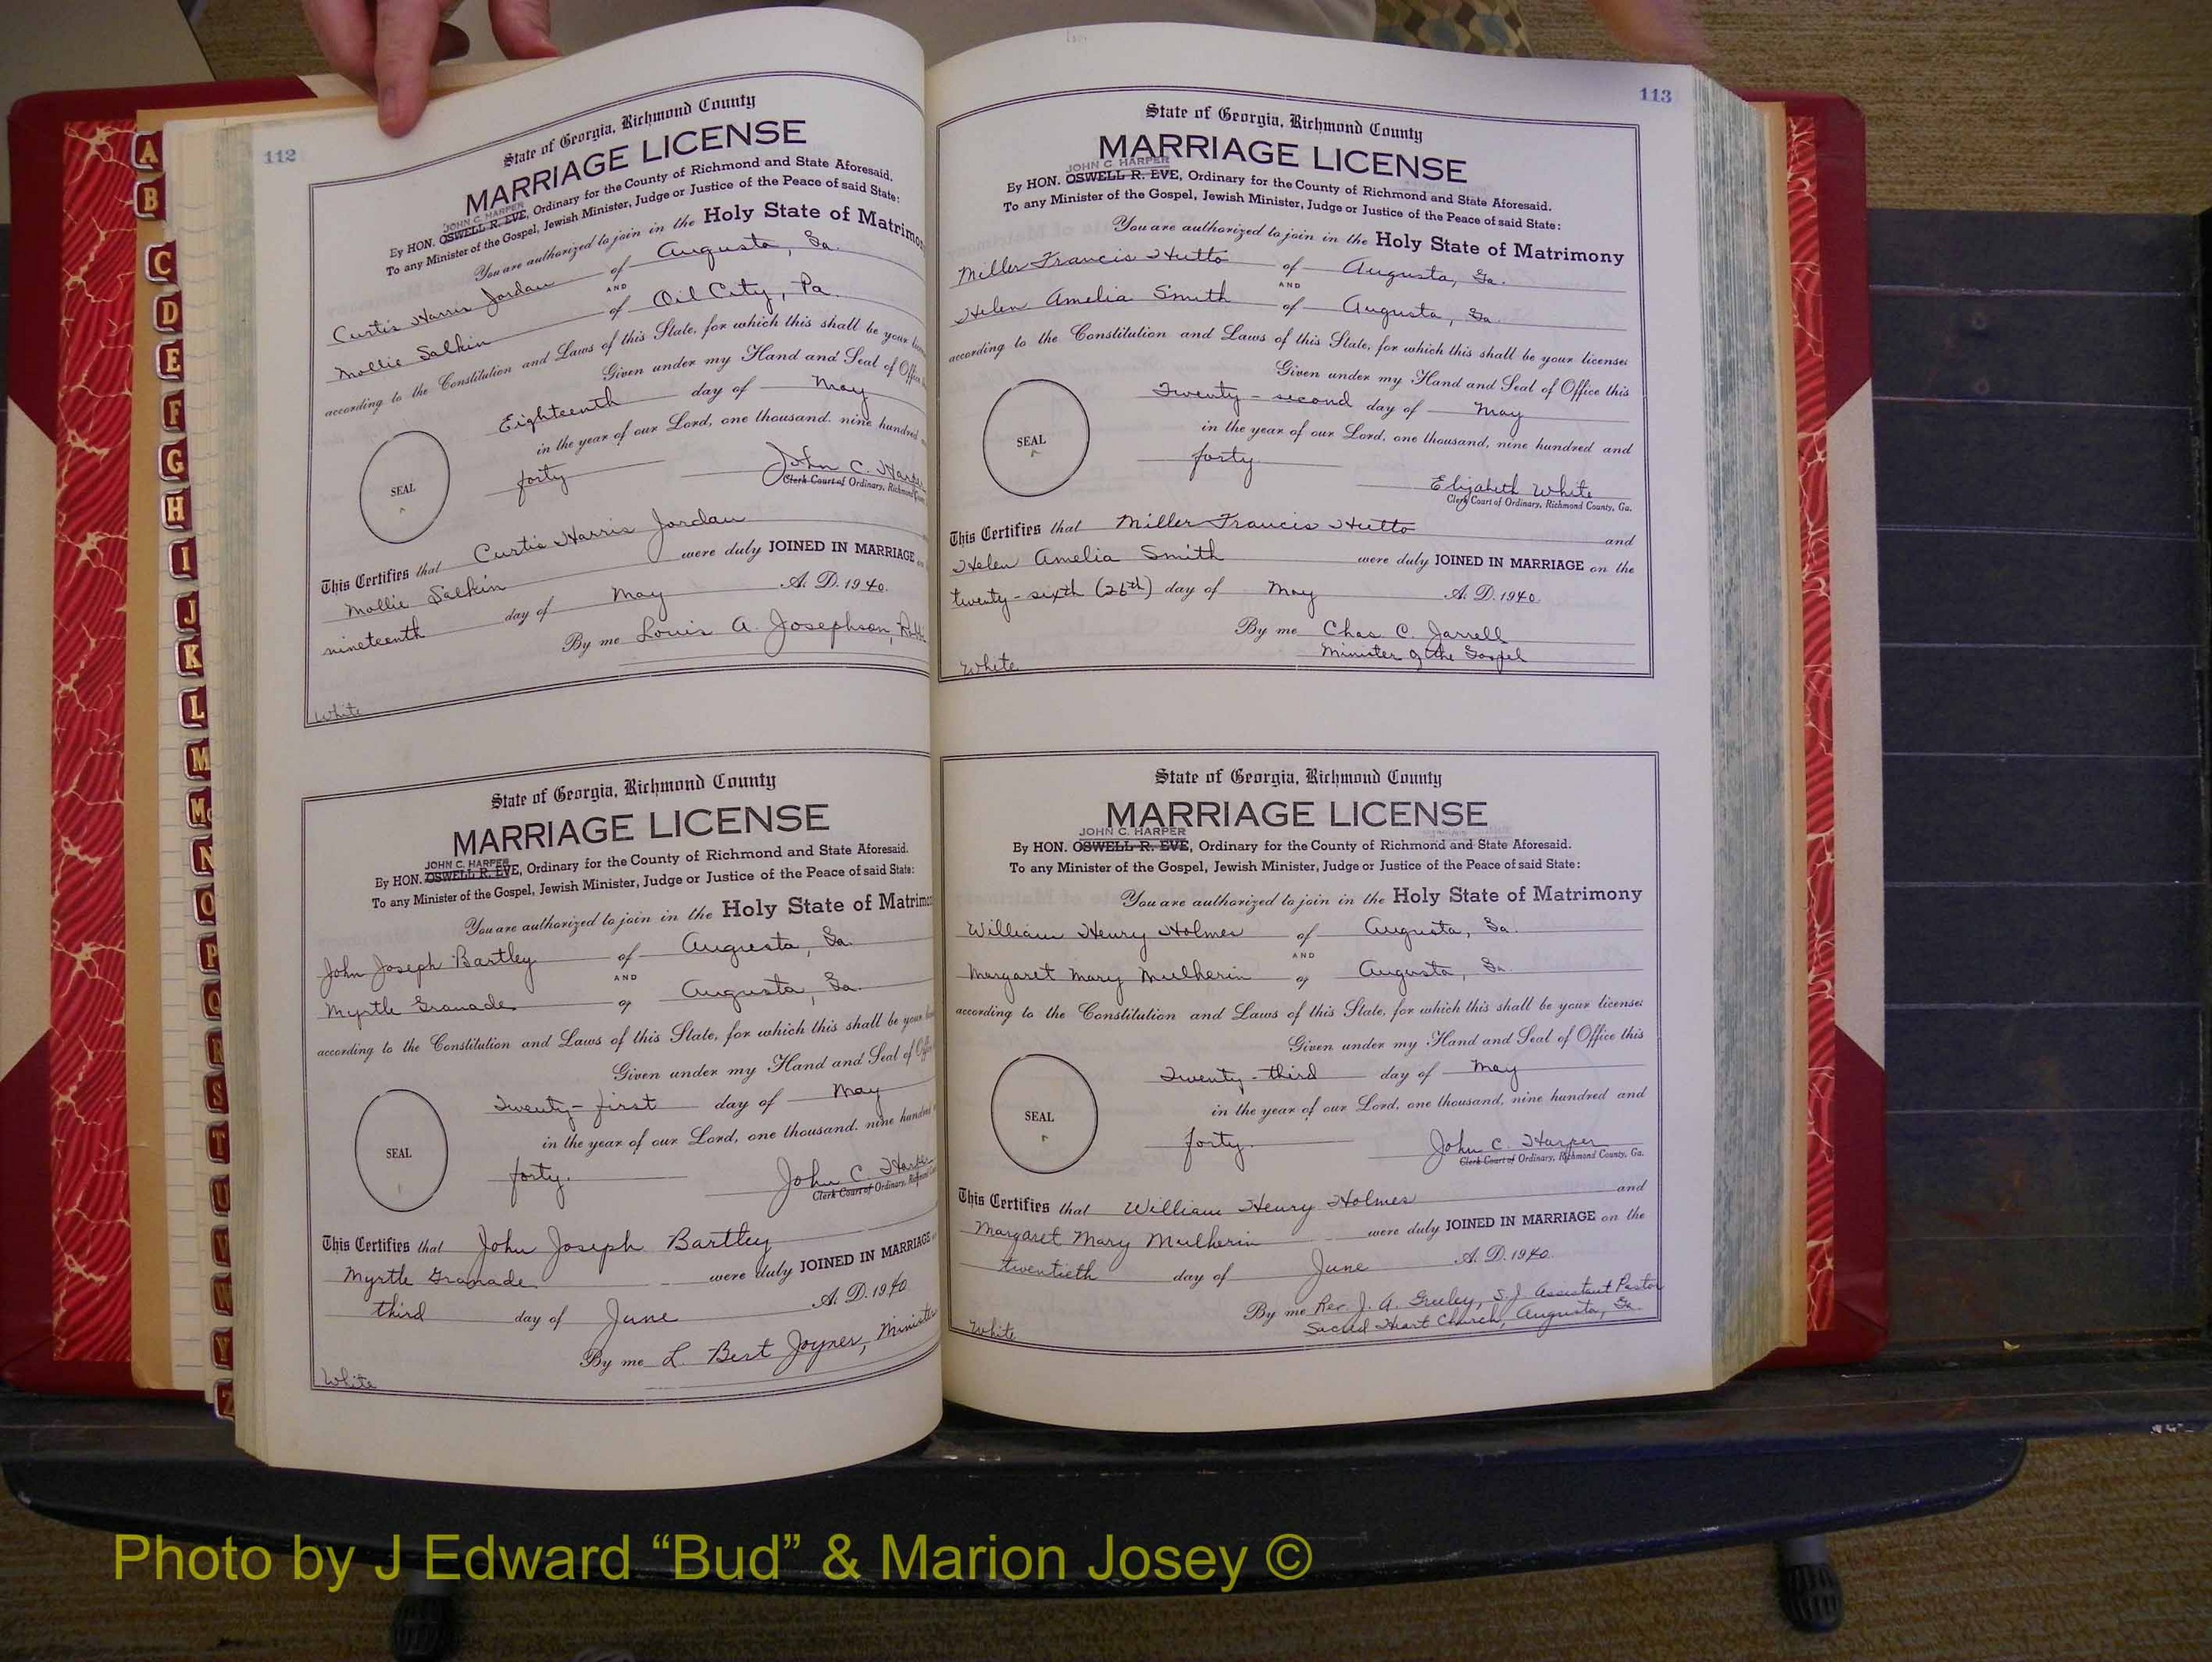 A
B
C
D
E
F
G
H
I
J
K
L
M
Mc
N
O
P
Q
R
S
T
U
V
W
Y
Z
112
State of Georgia, Richmond County
MARRIAGE LICENSE
JOHN C. HARPER
By HON. OSWELL R. EVE, Ordinary for the County of Richmond and State Aforesaid.
To any Minister of the Gospel, Jewish Minister, Judge or Justice of the Peace of said State:
You are authorized to join in the Holy State of Matrimo
Curtis Harris Jordan of Augusta, Ga.
AND
Mollie Salkin of Oil City, Pa.
according to the Constitution and Laws of this State, for which this shall be your
Given under my Hand and Seal of Office
Eighteenth day of May
in the year of our Lord, one thousand, nine hundred
forty
John C. Harper
Clerk Court of Ordinary, Richmond
SEAL
This Certifies that Curtis Harris Jordan
Mollie Salkin were duly JOINED IN MARRIAGE
nineteenth day of May A. D. 1940.
By me Louis A. Josephson,
White
State of Georgia, Richmond County
MARRIAGE LICENSE
JOHN C. HARPER
By HON. OSWELL R. EVE, Ordinary for the County of Richmond and State Aforesaid.
To any Minister of the Gospel, Jewish Minister, Judge or Justice of the Peace of said State:
You are authorized to join in the Holy State of Matrimo
John Joseph Bartley of Augusta, Ga.
AND
Myrtle Granade of Augusta, Ga.
according to the Constitution and Laws of this State, for which this shall be your
Given under my Hand and Seal of
Twenty-first day of May
in the year of our Lord, one thousand, nine hundred
forty.
John C. Harper
Clerk Court of Ordinary,
SEAL
This Certifies that John Joseph Bartley
Myrtle Granade were duly JOINED IN MARRIAGE
third day of June A. D. 1940
By me L. Bert Joyner, Minister
White
113
State of Georgia, Richmond County
MARRIAGE LICENSE
JOHN C. HARPER
By HON. OSWELL R. EVE, Ordinary for the County of Richmond and State Aforesaid.
To any Minister of the Gospel, Jewish Minister, Judge or Justice of the Peace of said State:
You are authorized to join in the Holy State of Matrimony
Miller Francis Hutto of Augusta, Ga.
AND
Helen Amelia Smith of Augusta, Ga.
according to the Constitution and Laws of this State, for which this shall be your license:
Given under my Hand and Seal of Office this
Twenty-second day of May
in the year of our Lord, one thousand, nine hundred and
forty
Elizabeth White
Clerk Court of Ordinary, Richmond County, Ga.
SEAL
This Certifies that Miller Francis Hutto and
Helen Amelia Smith were duly JOINED IN MARRIAGE on the
twenty-sixth (26th) day of May A. D. 1940.
By me Chas. C. Jarrell
Minister of the Gospel
White
State of Georgia, Richmond County
MARRIAGE LICENSE
JOHN C. HARPER
By HON. OSWELL R. EVE, Ordinary for the County of Richmond and State Aforesaid.
To any Minister of the Gospel, Jewish Minister, Judge or Justice of the Peace of said State:
You are authorized to join in the Holy State of Matrimony
William Henry Holmes of Augusta, Ga.
AND
Margaret Mary Mulherin of Augusta, Ga.
according to the Constitution and Laws of this State, for which this shall be your license:
Given under my Hand and Seal of Office this
Twenty-third day of May
in the year of our Lord, one thousand, nine hundred and
forty.
John C. Harper
Clerk Court of Ordinary, Richmond County, Ga.
SEAL
This Certifies that William Henry Holmes and
Margaret Mary Mulherin were duly JOINED IN MARRIAGE on the
twentieth day of June A. D. 1940.
By me Rev. J. A. Greeley, S.J. Assistant Pastor
Sacred Heart Church, Augusta, Ga.
White
Photo by J Edward “Bud” & Marion Josey ©